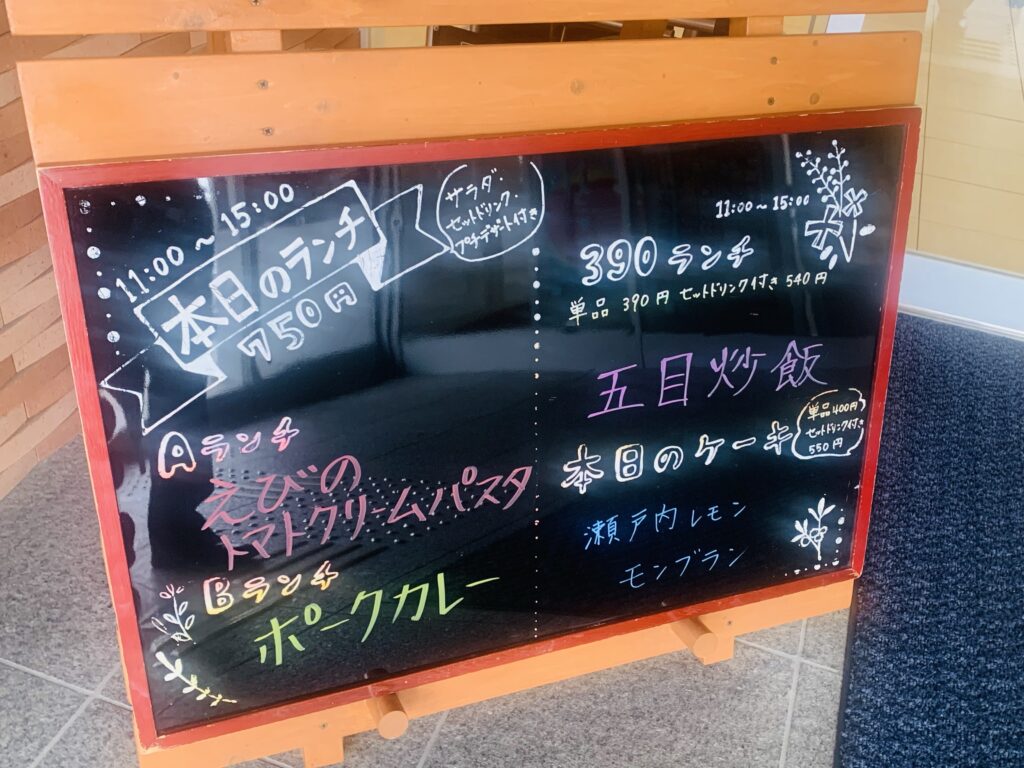 11:00〜15:00
本日のランチ
750円
サラダ・
セットドリンク・
プチデザート付き
Aランチ
えびの
トマトクリームパスタ
Bランチ
ポークカレー
11:00〜15:00
390ランチ
単品 390円 セットドリンク付き 540円
五目炒飯
本日のケーキ
単品400円
セットドリンク付き
550円
瀬戸内レモン
モンブラン